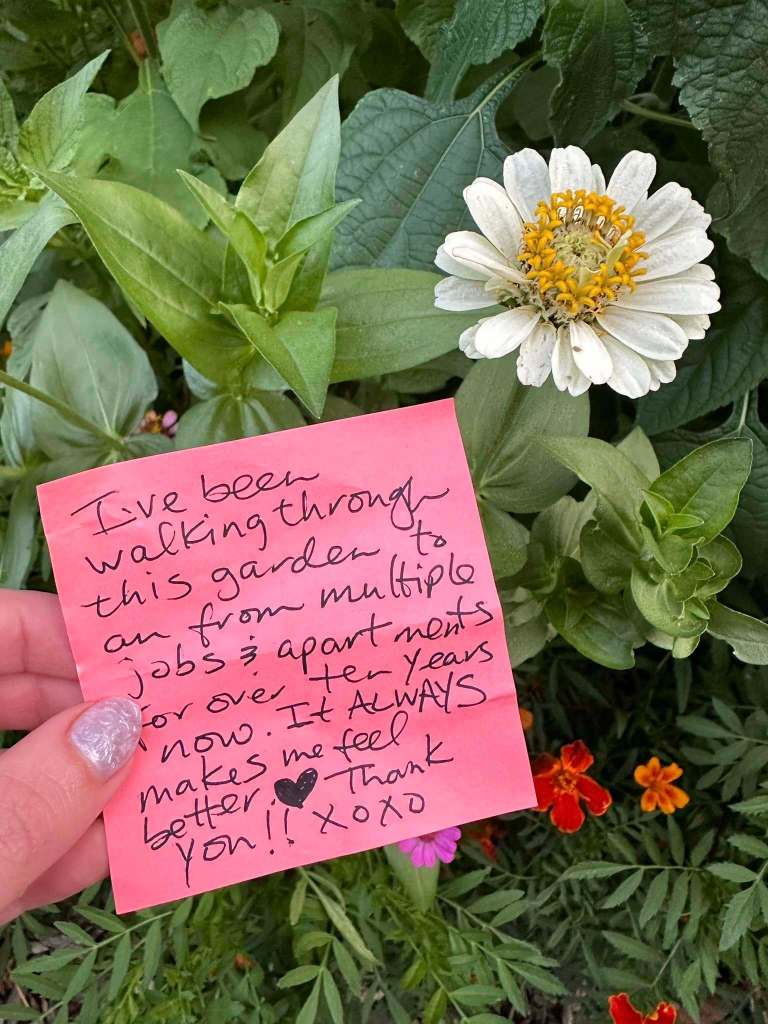 I've been
walking through
this garden to
an from multiple
jobs & apartments
for over ten years
now. It ALWAYS
makes me feel
better. ♥ Thank
you!! xoxo